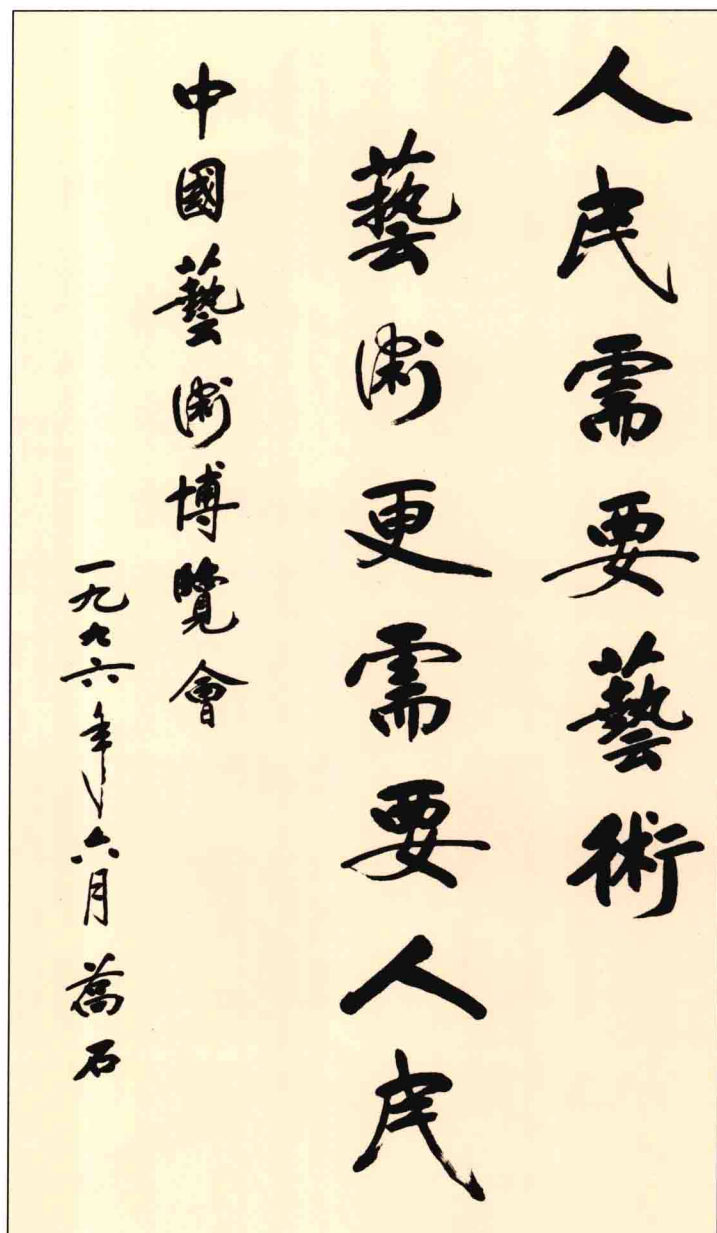 人民需要藝術
藝術更需要人民
中國藝術博覽會
一九九六年六月 喬石